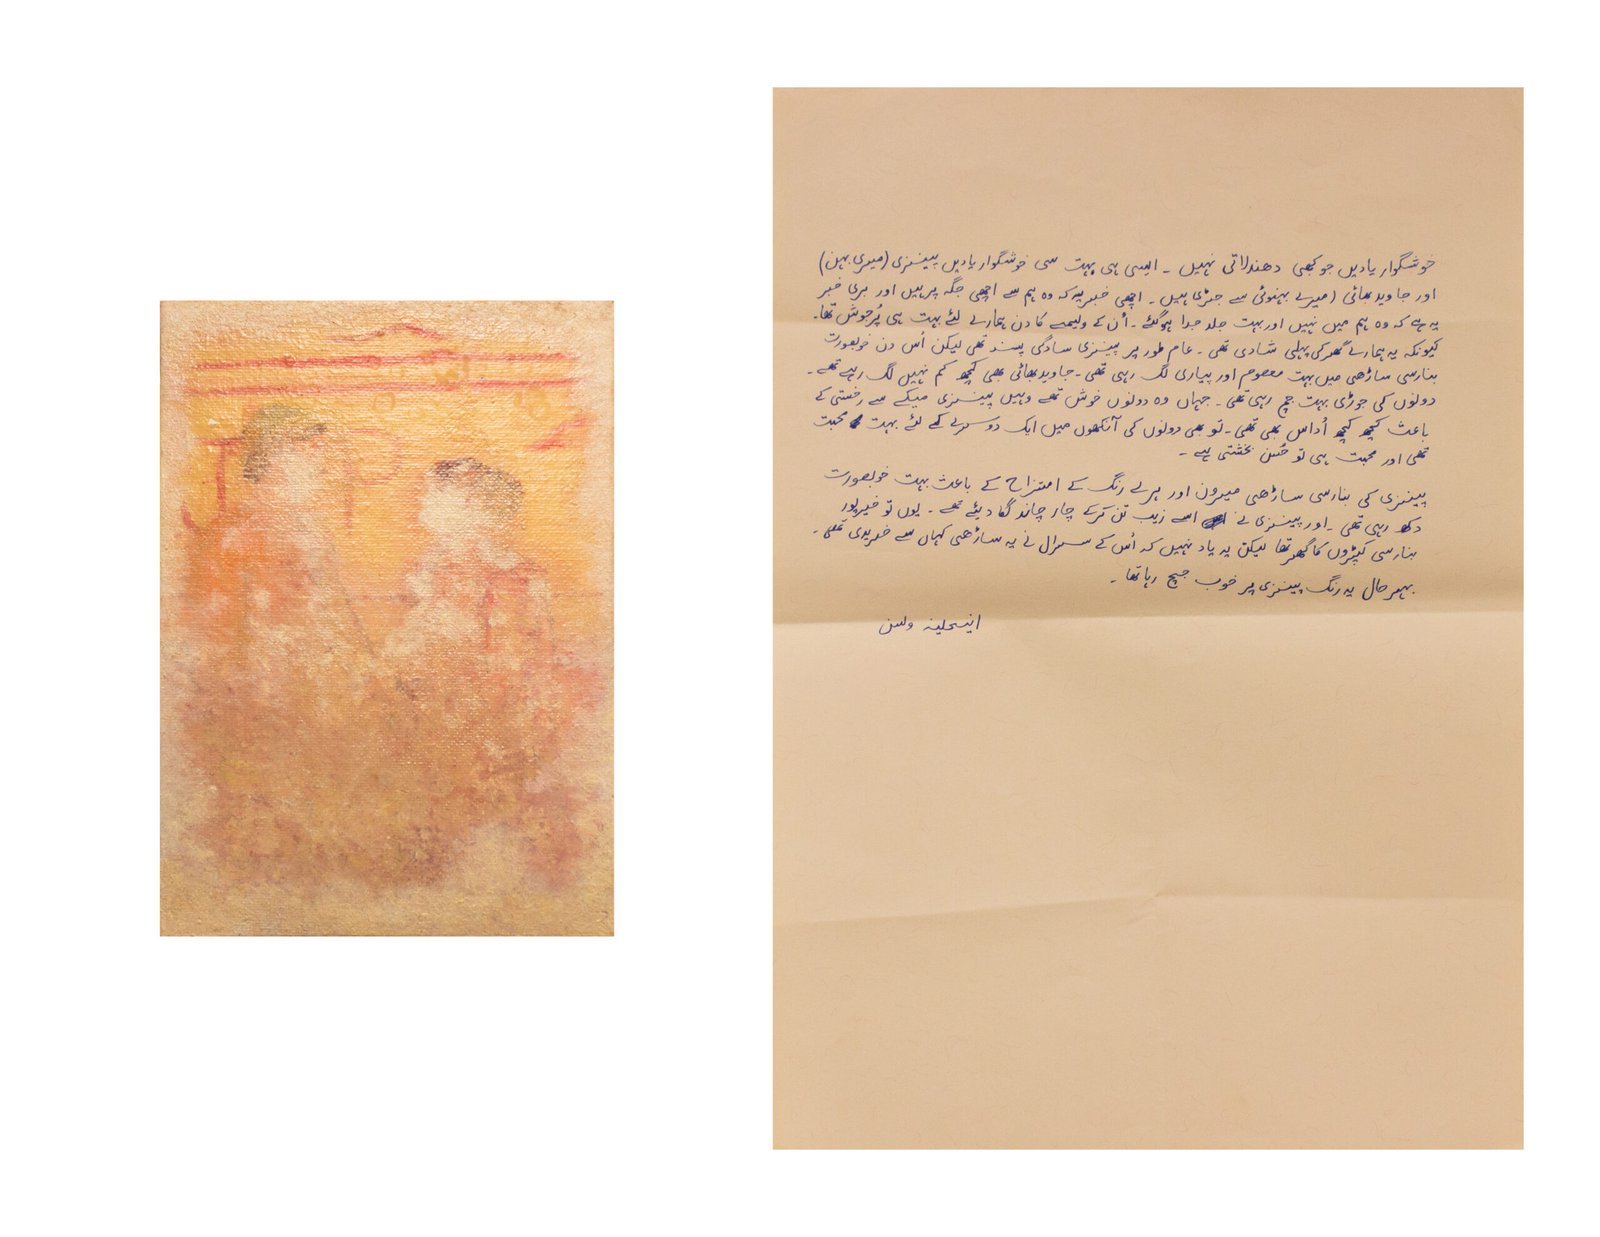 خوشگوار یادیں جو کبھی دھندلاتی نہیں ۔ ایسی ہی بہت سی خوشگوار یادیں پینسزی (میری بہن)
اور جاوید بھائی (میرے بہنوئی سے جڑی ہیں ۔ اچھی خبر یہ کہ وہ ہم سے اچھی جگہ پر ہیں اور بری خبر
یہ ہے کہ وہ ہم میں نہیں اور بہت جلد جدا ہو گئے ۔ اُن کے ولیمے کا دن ہمارے لئے بہت ہی پُرجوش تھا۔
کیونکہ یہ ہمارے گھر کی پہلی شادی تھی ۔ عام طور پر پینسزی سادگی پسند تھی لیکن اُس دن خوبصورت
بنارسی ساڑھی میں بہت معصوم اور پیاری لگ رہی تھی ۔ جاوید بھائی بھی کچھ کم نہیں لگ رہے تھے ۔
دونوں کی جوڑی بہت جچ رہی تھی ۔ جہاں وہ دونوں خوش تھے وہیں پینسزی میکے سے رخصتی کے
باعث کچھ کچھ اُداس بھی تھی ۔ تو بھی دونوں کی آنکھوں میں ایک دوسرے کے لئے بہت محبت
تھی اور محبت ہی تو حُسن بخشتی ہے ۔
پینسزی کی بنارسی ساڑھی میرون اور ہرے رنگ کے امتزاج کے باعث بہت خوبصورت
دکھ رہی تھی ۔ اور پینسزی نے اسے زیب تن کرکے چار چاند لگا دیئے تھے ۔ یوں تو خیرپور
بنارسی کپڑوں کا گھر تھا لیکن یہ یاد نہیں کہ اُس کے سسرال نے یہ ساڑھی کہاں سے خریدی تھی ۔
بہرحال یہ رنگ پینسزی پر خوب جچ رہا تھا ۔
ولسن